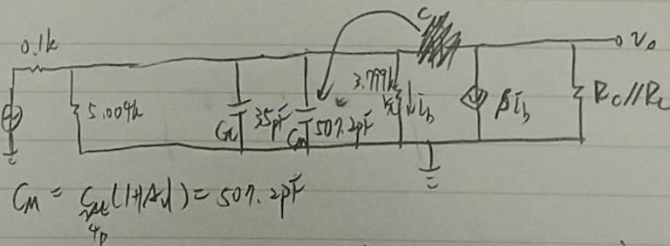 C
0.1k
Vo
5.004k
Cπ
35pF
CM
507.2pF
3.799k
rπ
ib
βib
Rc//RL
CM = Cμ(1+|Av|) = 507.2pF
4p